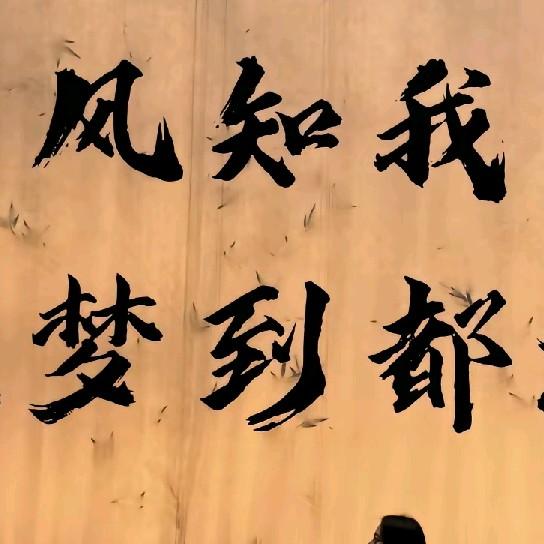 风知我
梦到都